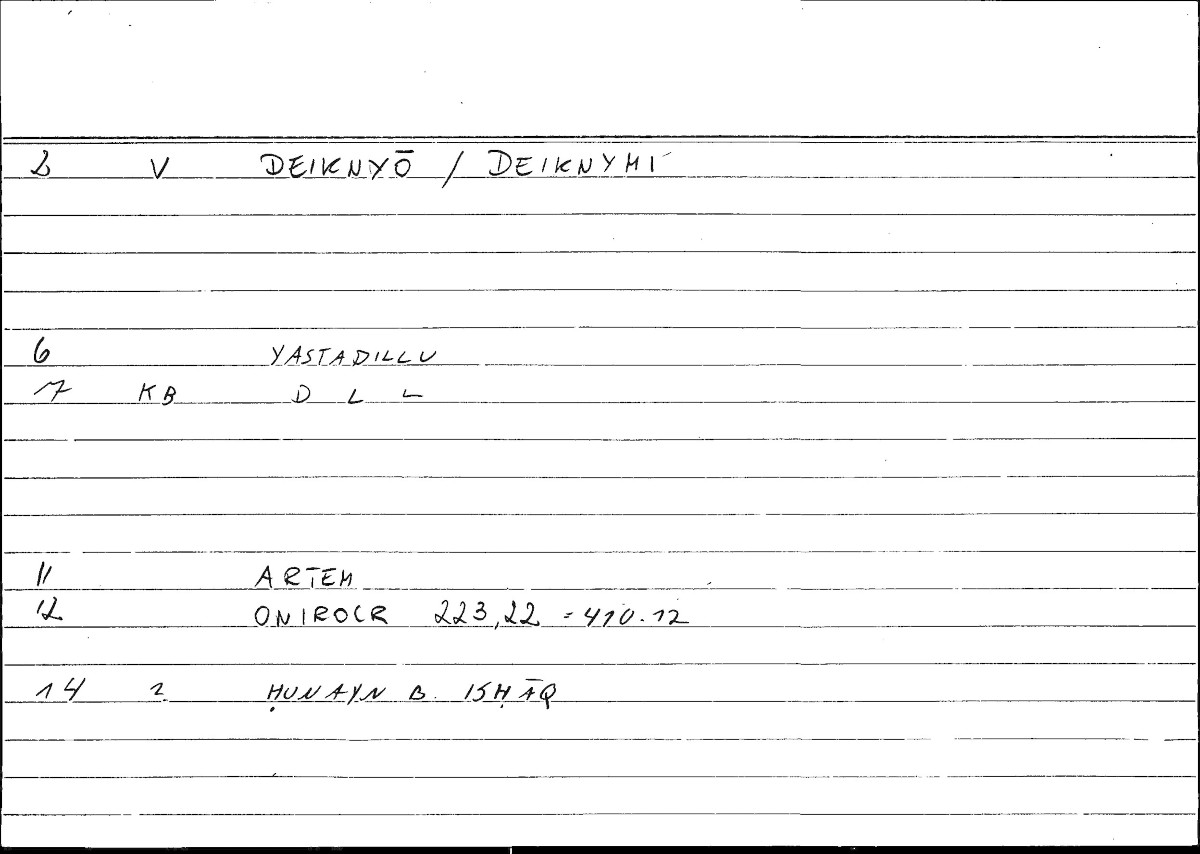 2 V DEIKNYŌ / DEIKNYMI
6 YASTADILLU
7 KB D L L
11 ARTEM
12 ONIROCR 223,22 = 410.12
14 2 ḤUNAYN B. ISḤĀQ